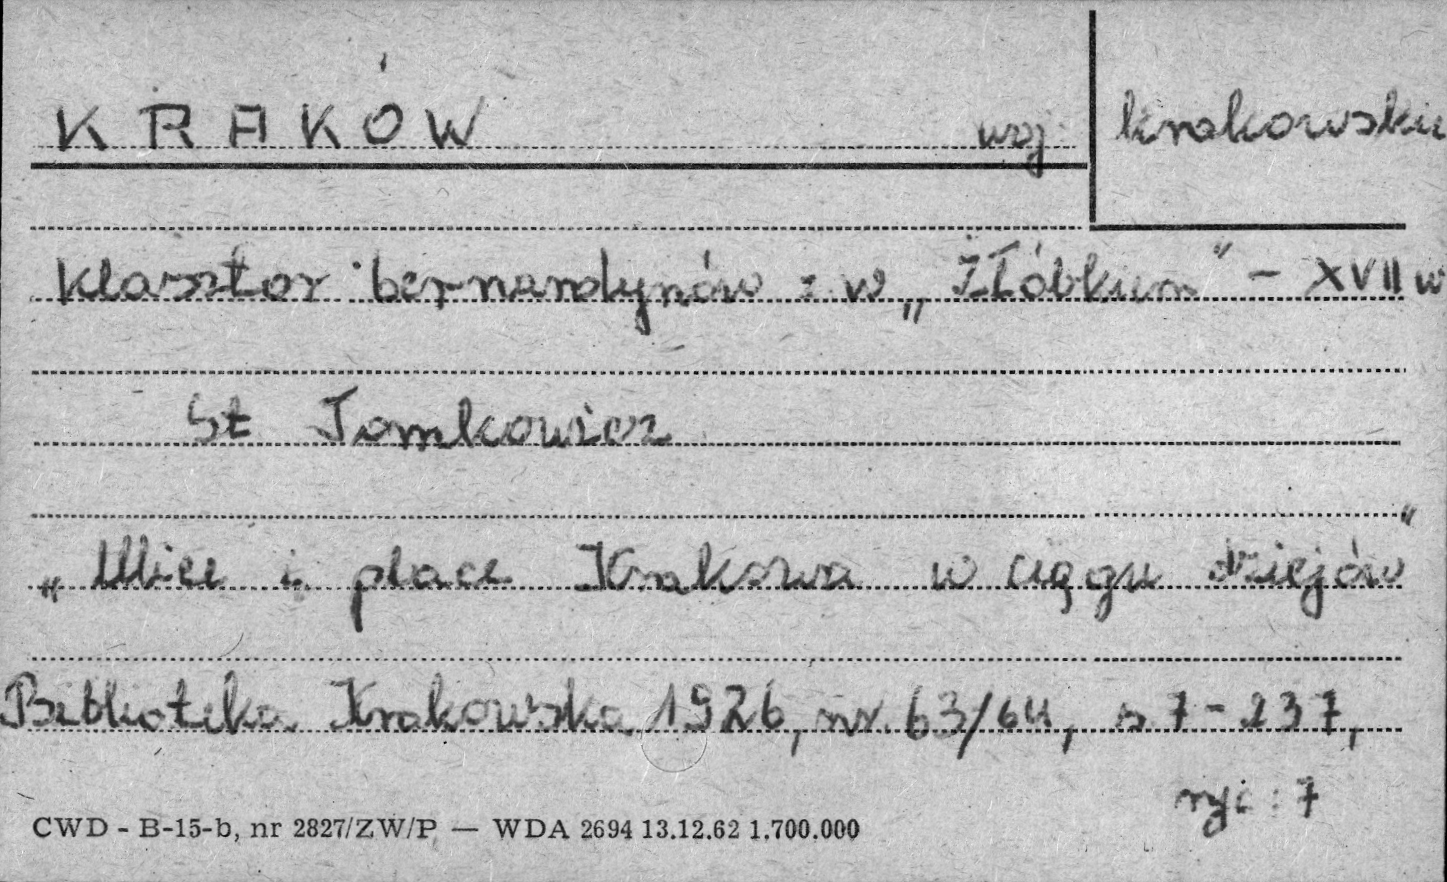 KRAKÓW woj. krakowskie
Klasztor bernardynów : w „Żłóbkum" – XVII w
St Tomkowicz
„Ulice i place Krakowa w ciągu dziejów"
Biblioteka Krakowska 1926, nr. 63/64, s 7-237,
ryc : 7
CWD - B-15-b, nr 2827/ZW/P — WDA 2694 13.12.62 1.700.000